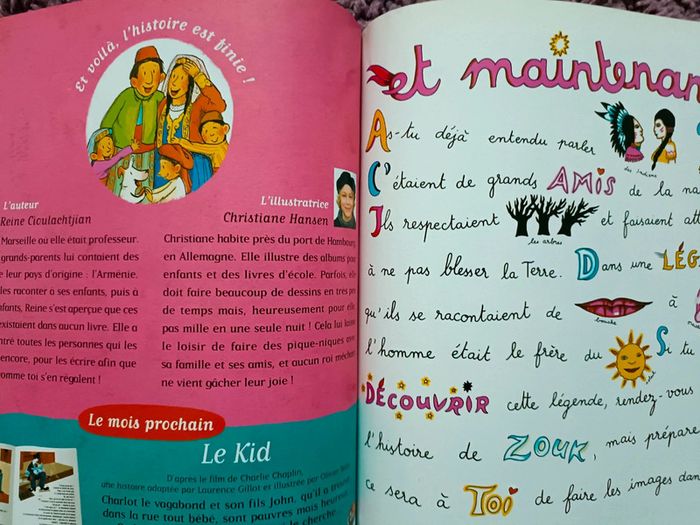 Et voilà, l'histoire est finie !
L'auteur
Reine Cioulachtjian
Marseille où elle était professeur.
grands-parents lui contaient des
e leur pays d'origine : l'Arménie.
les raconter à ses enfants, puis à
enfants, Reine s'est aperçue que ces
existaient dans aucun livre. Elle a
ntré toutes les personnes qui les
encore, pour les écrire afin que
omme toi s'en régalent !
L'illustratrice
Christiane Hansen
Christiane habite près du port de Hambourg
en Allemagne. Elle illustre des albums pour
enfants et des livres d'école. Parfois, elle
doit faire beaucoup de dessins en très peu
de temps mais, heureusement pour elle
pas mille en une seule nuit ! Cela lui laisse
le loisir de faire des pique-niques avec
sa famille et ses amis, et aucun roi méchant
ne vient gâcher leur joie !
Le mois prochain
Le Kid
D'après le film de Charlie Chaplin,
une histoire adaptée par Laurence Gillot et illustrée par Olivier
Charlot le vagabond et son fils John, qu'il a trouvé
dans la rue tout bébé, sont pauvres mais heureux
le cherche
et maintenan
As-tu déjà entendu parler
des indiens
C'étaient de grands AMIS de la na
Ils respectaient et faisaient att
les arbres
à ne pas blesser la Terre. Dans une LÉG
qu'ils se racontaient de à
bouche
l'homme était le frère du Si tu
soleil
DÉCOUVRIR cette légende, rendez-vous
l'histoire de ZOUK, mais prépare
ce sera à Toi de faire les images dan